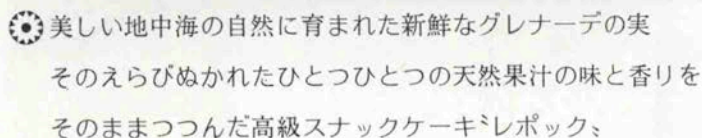 美しい地中海の自然に育まれた新鮮なグレナーデの実
そのえらびぬかれたひとつひとつの天然果汁の味と香りを
そのままつつんだ高級スナックケーキ〝レポック〟